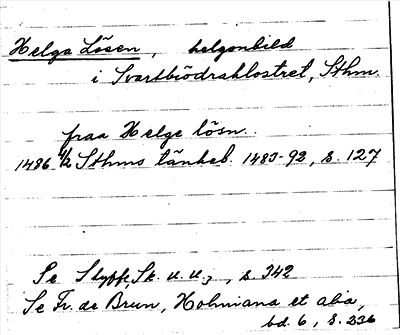 Helga Lösen, helgonbild
i Svartbrödraklostret, Sthm.
fraa Helge lösn.
1486 Sthms tänkeb. 1483-92, s. 127
Se Styffe, Sk. u. u. 3, s. 342
Se Fr. de Brun, Holmiana et alia,
bd. 6, s. 236